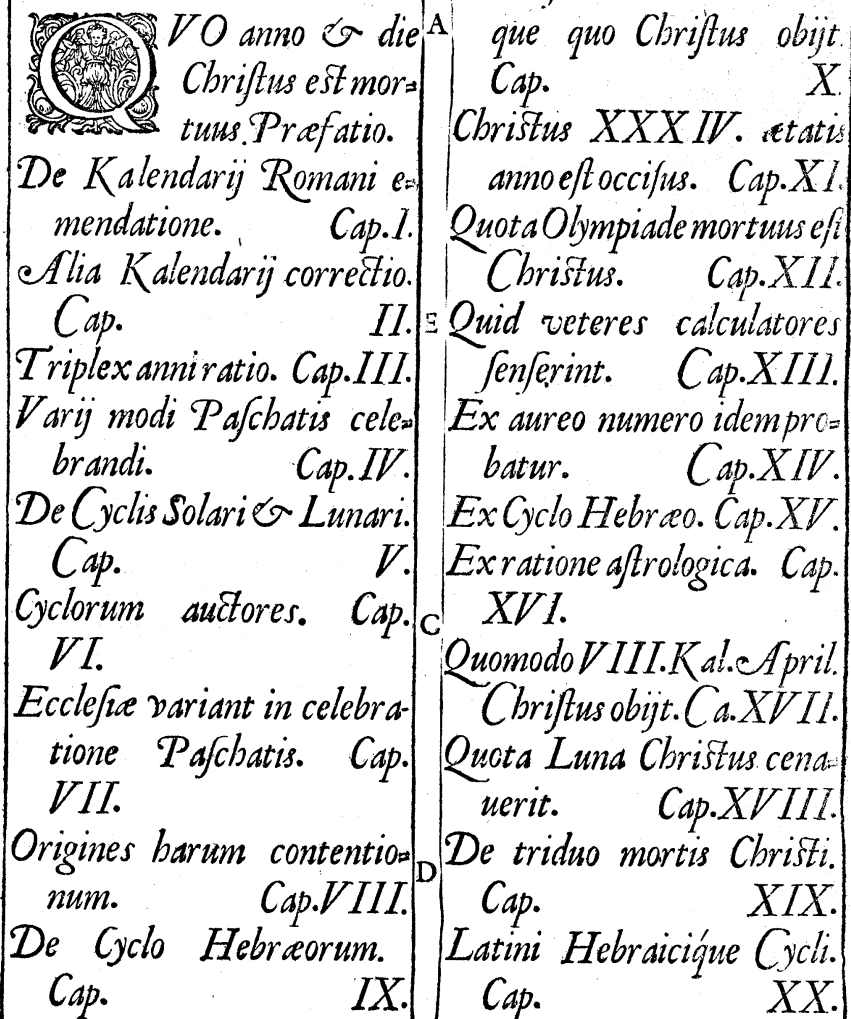 QVO anno & die
Christus est mor-
tuus. Præfatio.
De Kalendarij Romani e-
mendatione. Cap. I.
Alia Kalendarij correctio.
Cap. II.
Triplex anni ratio. Cap. III.
Varij modi Paschatis cele-
brandi. Cap. IV.
De Cyclis Solari & Lunari.
Cap. V.
Cyclorum auctores. Cap.
VI.
Ecclesiæ variant in celebra-
tione Paschatis. Cap.
VII.
Origines harum contentio-
num. Cap. VIII.
De Cyclo Hebræorum.
Cap. IX.
A
E
C
D
que quo Christus obijt.
Cap. X.
Christus XXXIV. ætatis
anno est occisus. Cap. XI.
Quota Olympiade mortuus est
Christus. Cap. XII.
Quid veteres calculatores
senserint. Cap. XIII.
Ex aureo numero idem pro-
batur. Cap. XIV.
Ex Cyclo Hebræo. Cap. XV.
Ex ratione astrologica. Cap.
XVI.
Quomodo VIII. Kal. April.
Christus obijt. Ca. XVII.
Quota Luna Christus cena-
uerit. Cap. XVIII.
De triduo mortis Christi.
Cap. XIX.
Latini Hebraiciq́ue Cycli.
Cap. XX.